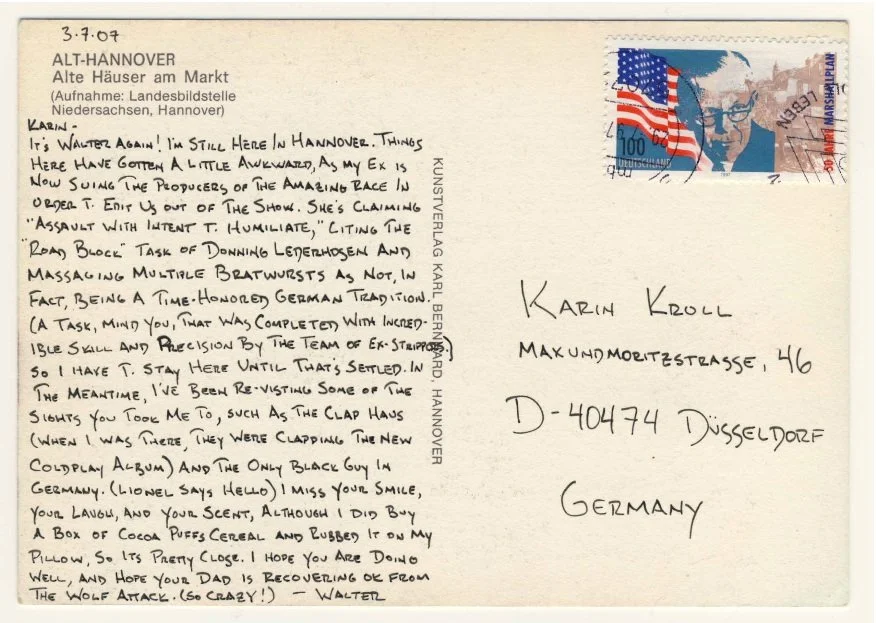 3.7.07
ALT-HANNOVER
Alte Häuser am Markt
(Aufnahme: Landesbildstelle
Niedersachsen, Hannover)
KARIN -
IT'S WALTER AGAIN! I'M STILL HERE IN HANNOVER. THINGS
HERE HAVE GOTTEN A LITTLE AWKWARD, AS MY EX IS
NOW SUING THE PRODUCERS OF THE AMAZING RACE IN
ORDER T. EDIT US OUT OF THE SHOW. SHE'S CLAIMING
"ASSAULT WITH INTENT T. HUMILIATE," CITING THE
"ROAD BLOCK" TASK OF DONNING LEDERHOSEN AND
MASSAGING MULTIPLE BRATWURSTS AS NOT, IN
FACT, BEING A TIME-HONORED GERMAN TRADITION.
(A TASK, MIND YOU, THAT WAS COMPLETED WITH INCRED-
IBLE SKILL AND PRECISION BY THE TEAM OF EX-STRIPPERS.)
SO I HAVE T. STAY HERE UNTIL THAT'S SETTLED. IN
THE MEANTIME, I'VE BEEN RE-VISTING SOME OF THE
SIGHTS YOU TOOK ME TO, SUCH AS THE CLAP HAUS
(WHEN I WAS THERE, THEY WERE CLAPPING THE NEW
COLDPLAY ALBUM) AND THE ONLY BLACK GUY IN
GERMANY. (LIONEL SAYS HELLO) I MISS YOUR SMILE,
YOUR LAUGH, AND YOUR SCENT, ALTHOUGH I DID BUY
A BOX OF COCOA PUFFS CEREAL AND RUBBED IT ON MY
PILLOW, SO ITS PRETTY CLOSE. I HOPE YOU ARE DOING
WELL, AND HOPE YOUR DAD IS RECOVERING OK FROM
THE WOLF ATTACK. (SO CRAZY!) - WALTER
KUNSTVERLAG KARL BERNHARD, HANNOVER
100
DEUTSCHLAND
1997
50 JAHRE MARSHALLPLAN
LEBEN
KARIN KROLL
MAXUNDMORITZSTRASSE, 46
D-40474 DÜSSELDORF
GERMANY